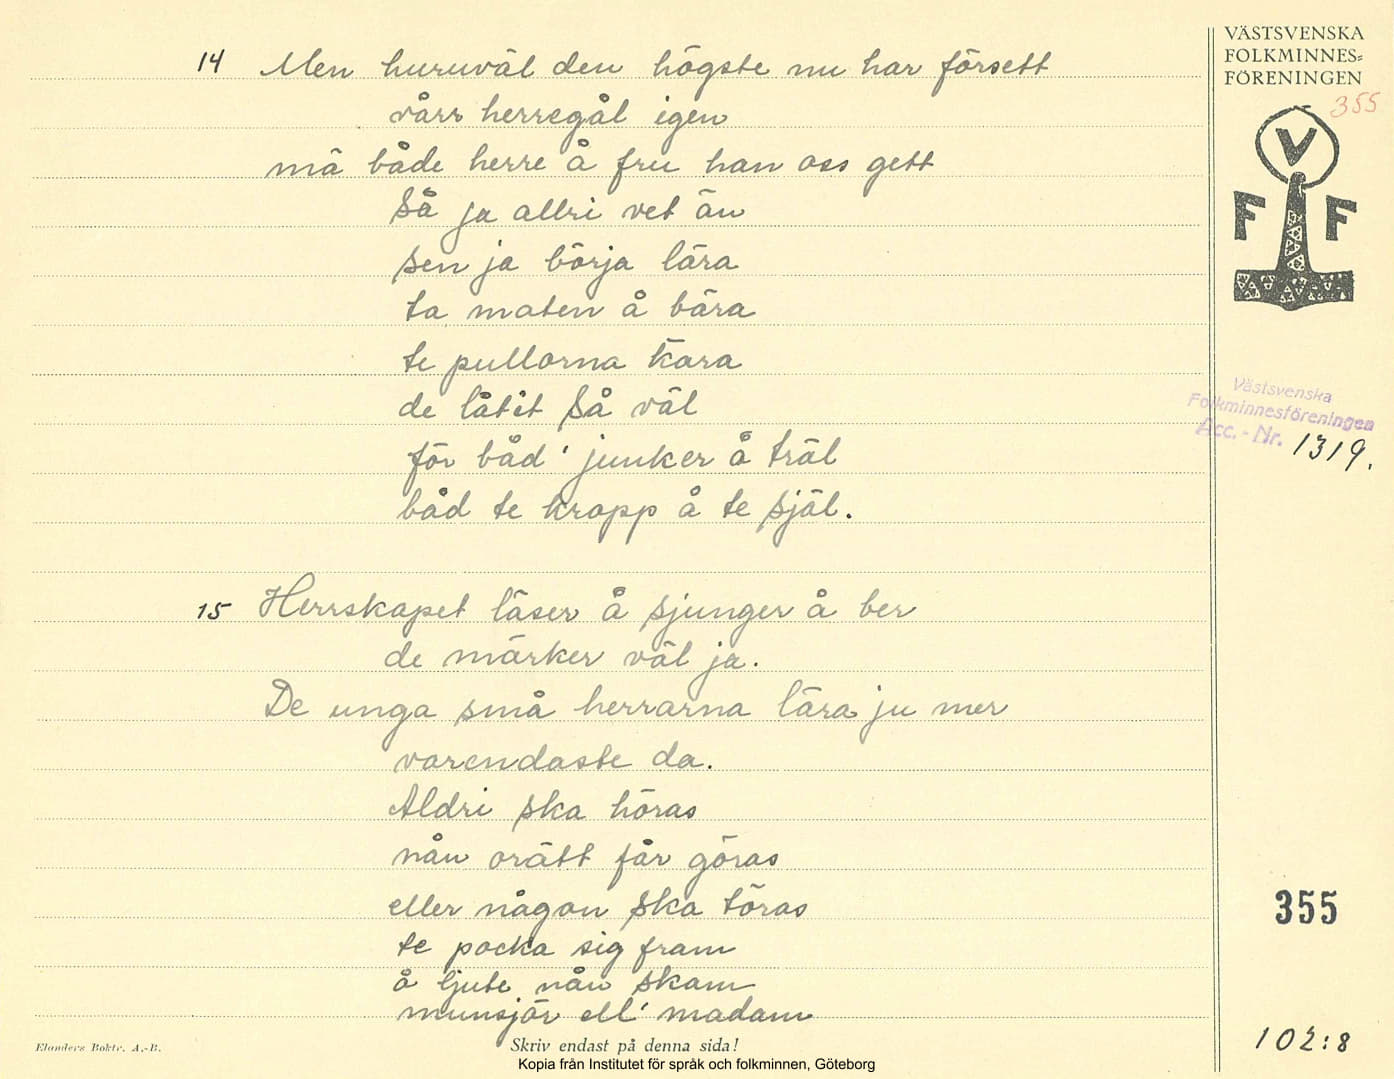 14 Men huruväl den högste nu har försett
vårr herregål igen
mä både herre å fru han oss gett
Så ja allri vet än
sen ja börja lära
ta maten å bära
te pullorna kära
de låtit så väl
för båd' junker å träl
båd te kropp å te själ.
15 Herrskapet läser å sjunger å ber
de märker väl ja.
De unga små herrarna lära ju mer
varendaste da.
Aldri ska höras
nån orätt får göras
eller någon ska töras
te pocka sig fram
å ljute nån skam
munsjör ell' madam
Elanders Boktr. A.-B.
Skriv endast på denna sida!
Kopia från Institutet för språk och folkminnen, Göteborg
VÄSTSVENSKA
FOLKMINNES=
FÖRENINGEN
355
V
F F
Västsvenska
Folkminnesföreningen
Acc. - Nr. 1319.
355
102:8